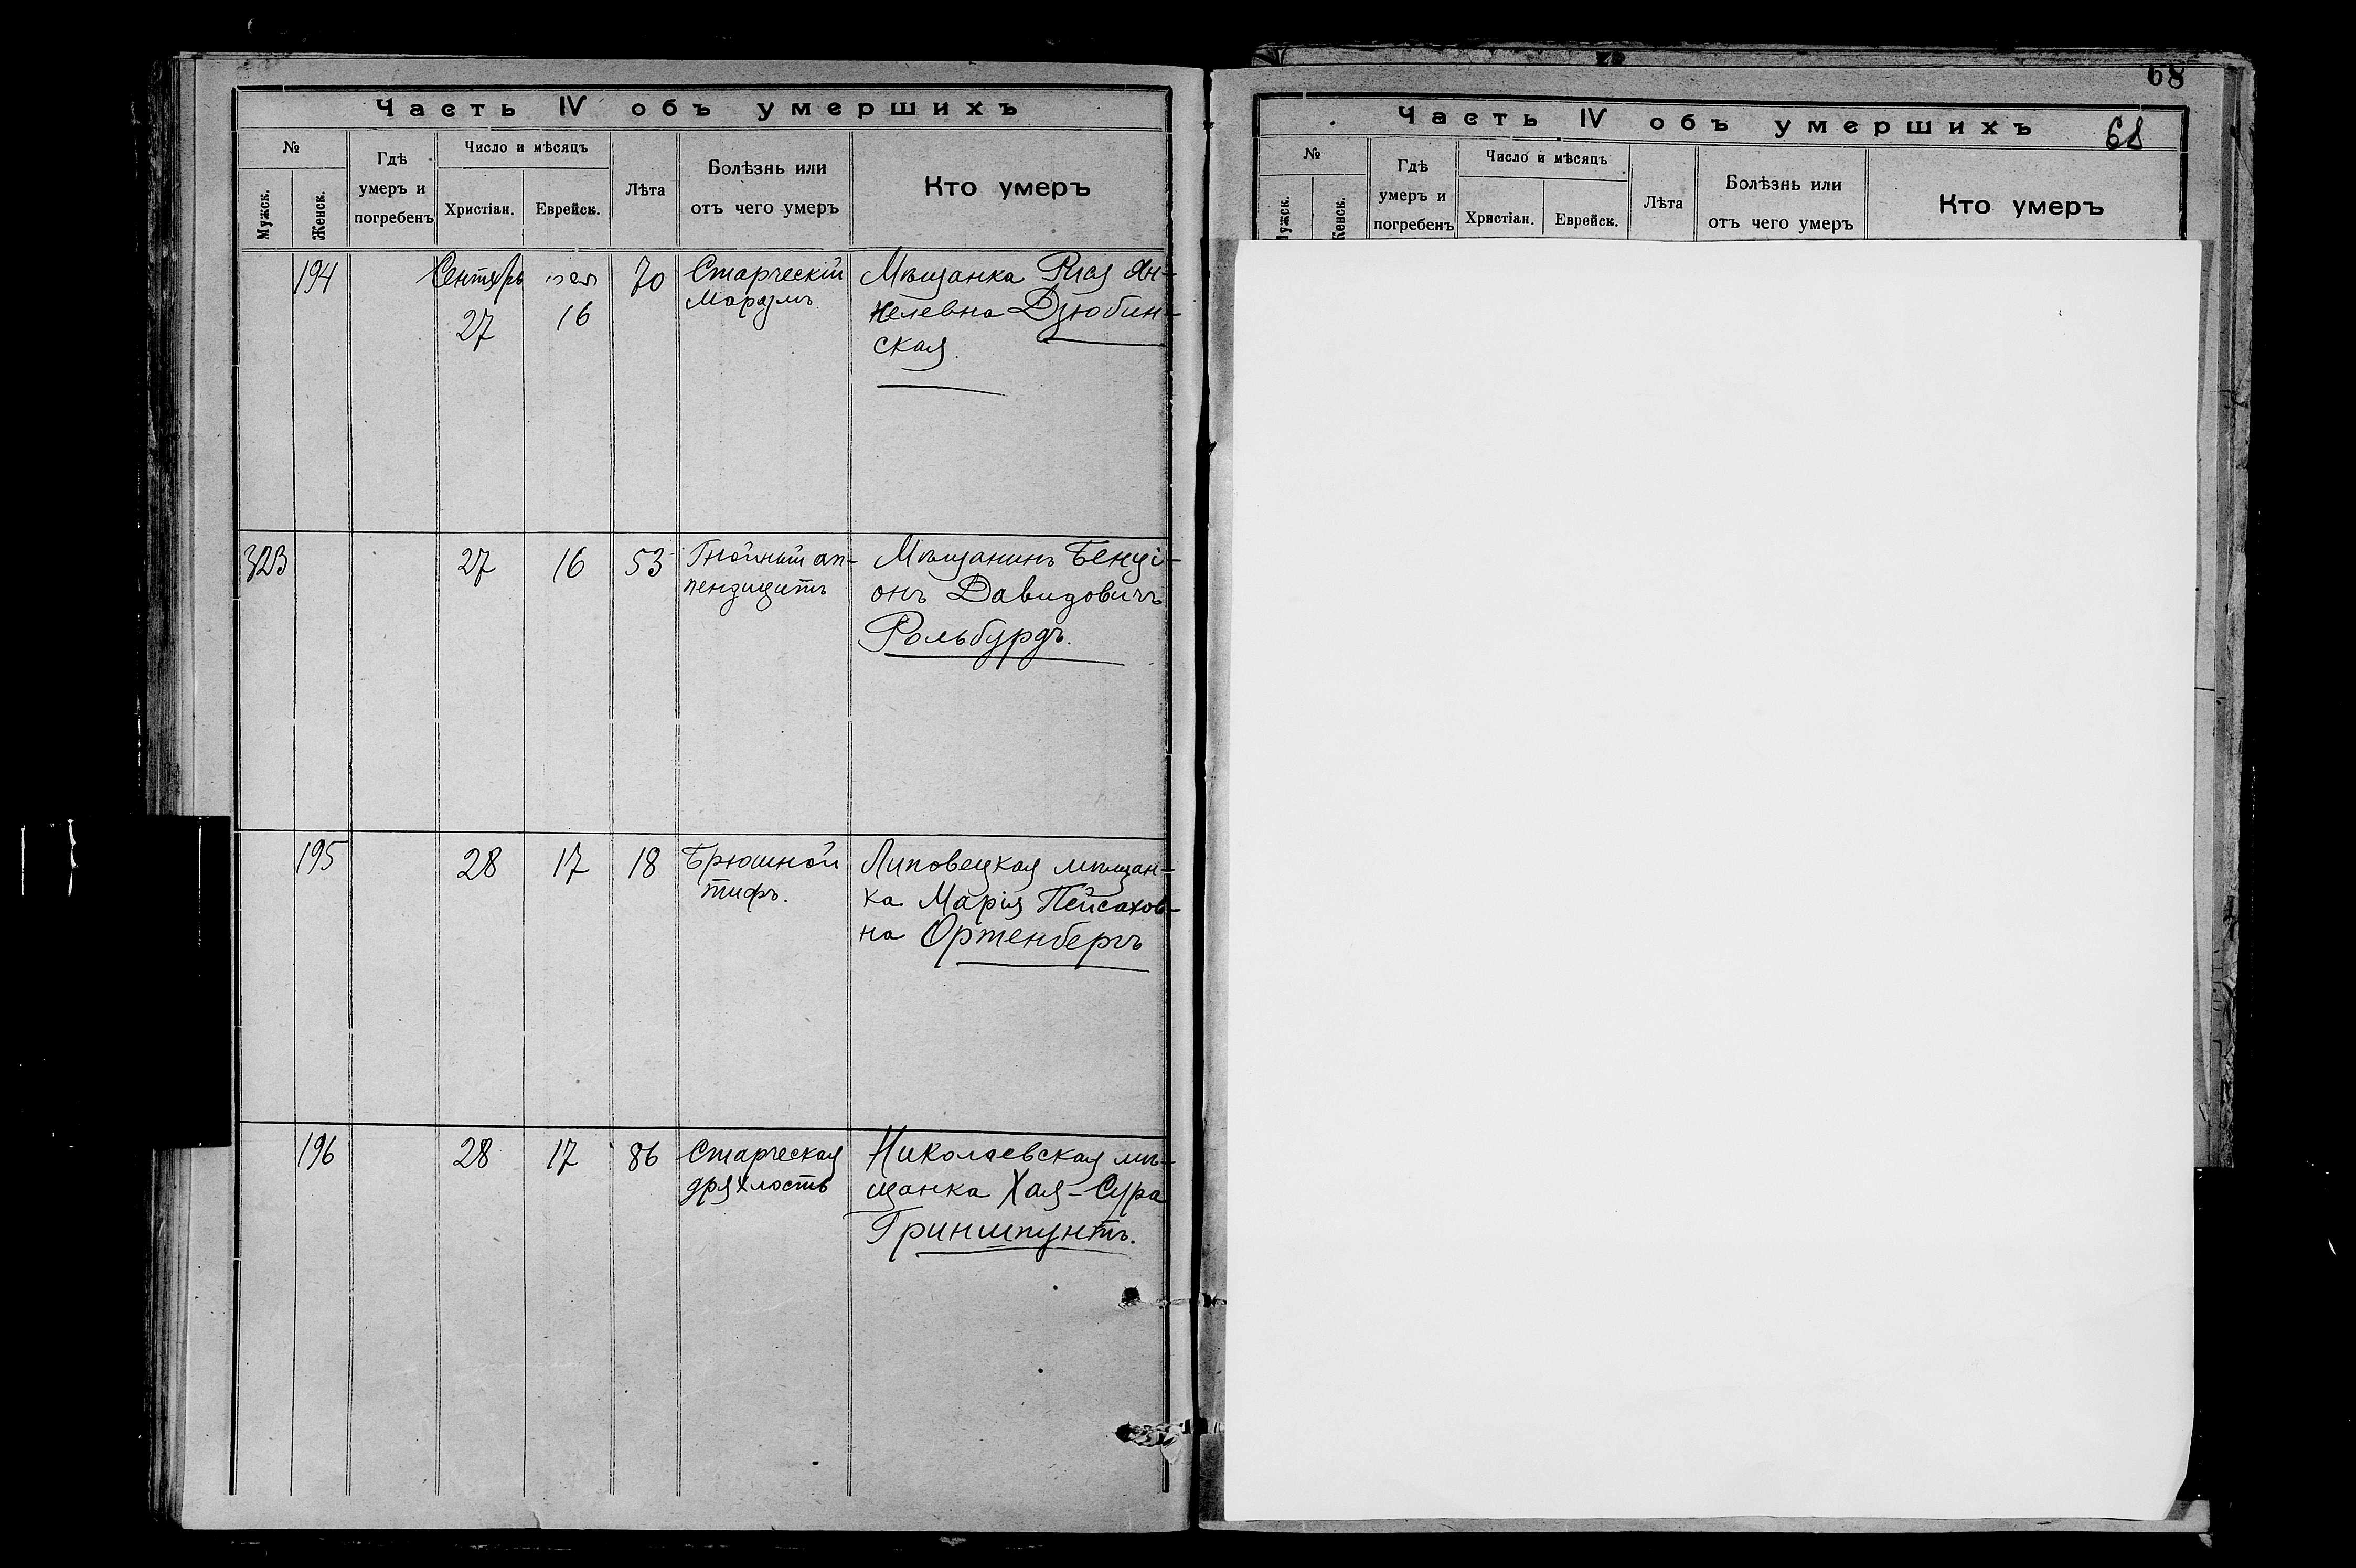 Часть IV объ умершихъ
№
Мужск.
Женск.
Гдѣ
умеръ и
погребенъ
Число и мѣсяцъ
Христіан.
Еврейск.
Лѣта
Болѣзнь или
отъ чего умеръ
Кто умеръ
194
Сентябрь
27
16
70
Старческій
Маразмъ.
Мѣщанка Рися Ян-
келевна Дзюбин-
ская.
323
27
16
53
Гнойный ап-
пендицитъ
Мѣщанинъ Бенці-
онъ Давидовичъ
Рольбурдъ.
195
28
17
18
Брюшной
тифъ.
Липовецкая мѣщан-
ка Марія Пейсахов-
на Ортенбергъ
196
28
17
86
Старческая
дряхлость
Николаевская мѣ-
щанка Хая-Сура
Гриншпунтъ.
68
Часть IV объ умершихъ
68
№
Мужск.
Женск.
Гдѣ
умеръ и
погребенъ
Число и мѣсяцъ
Христіан.
Еврейск.
Лѣта
Болѣзнь или
отъ чего умеръ
Кто умеръ